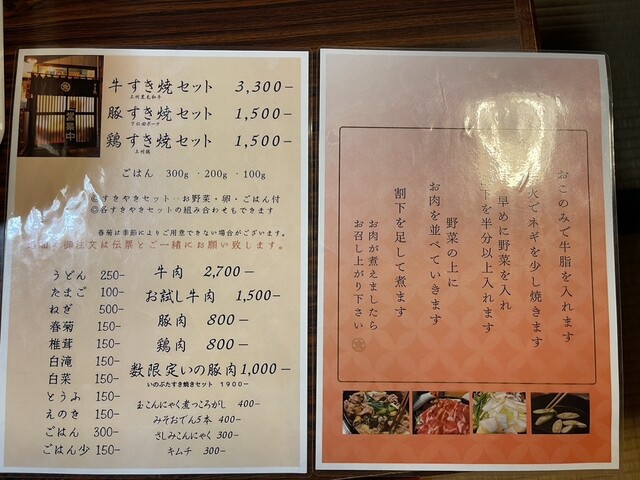 牛すき焼セット 3,300-
上州黒毛和牛
豚すき焼セット 1,500-
下仁田ポーク
鶏すき焼セット 1,500-
上州鶏
ごはん 300g ・200g ・100g
◎すきやきセット‥お野菜・卵・ごはん付
◎各すきやきセットの組み合わせもできます
春菊は季節によりご用意できない場合がございます。
御注文は伝票とご一緒にお願い致します。
うどん 250-
たまご 100-
ねぎ 500-
春菊 150-
椎茸 150-
白滝 150-
白菜 150-
とうふ 150-
えのき 150-
ごはん 300-
ごはん少 150-
牛肉 2,700-
お試し牛肉 1,500-
豚肉 800-
鶏肉 800-
数限定いの豚肉1,000-
いのぶたすき焼きセット 1900-
玉こんにゃく煮っころがし 400-
みそおでん5本 400-
さしみこんにゃく 300-
キムチ 300-
営業中
おこのみで牛脂を入れます
火でネギを少し焼きます
早めに野菜を入れ
下を半分以上入れます
野菜の上に
お肉を並べていきます
割下を足して煮ます
お肉が煮えましたら
お召し上がり下さい